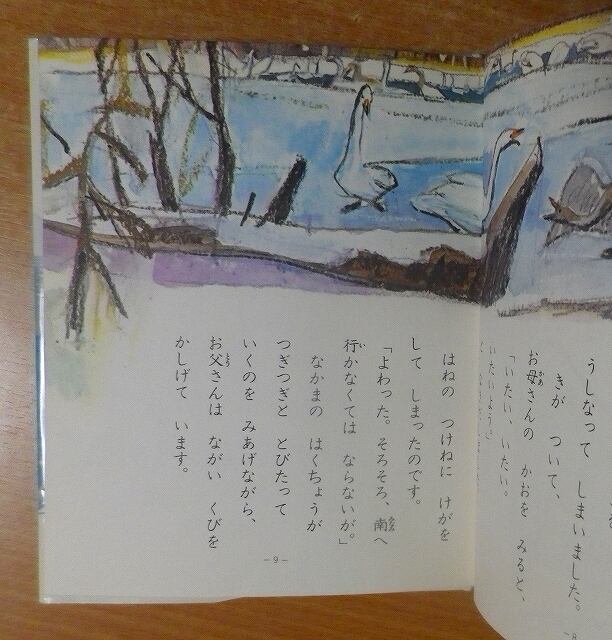 うしなって しまいました。
きが ついて、
お母さんの かおを みると、
「いたい、いたい。
いたいよう。」
はねの つけねに けがを
して しまったのです。
「よわった。そろそろ、南へ
行かなくては ならないが。」
なかまの はくちょうが
つぎつぎと とびたって
いくのを みあげながら、
お父さんは ながい くびを
かしげて います。
－9－